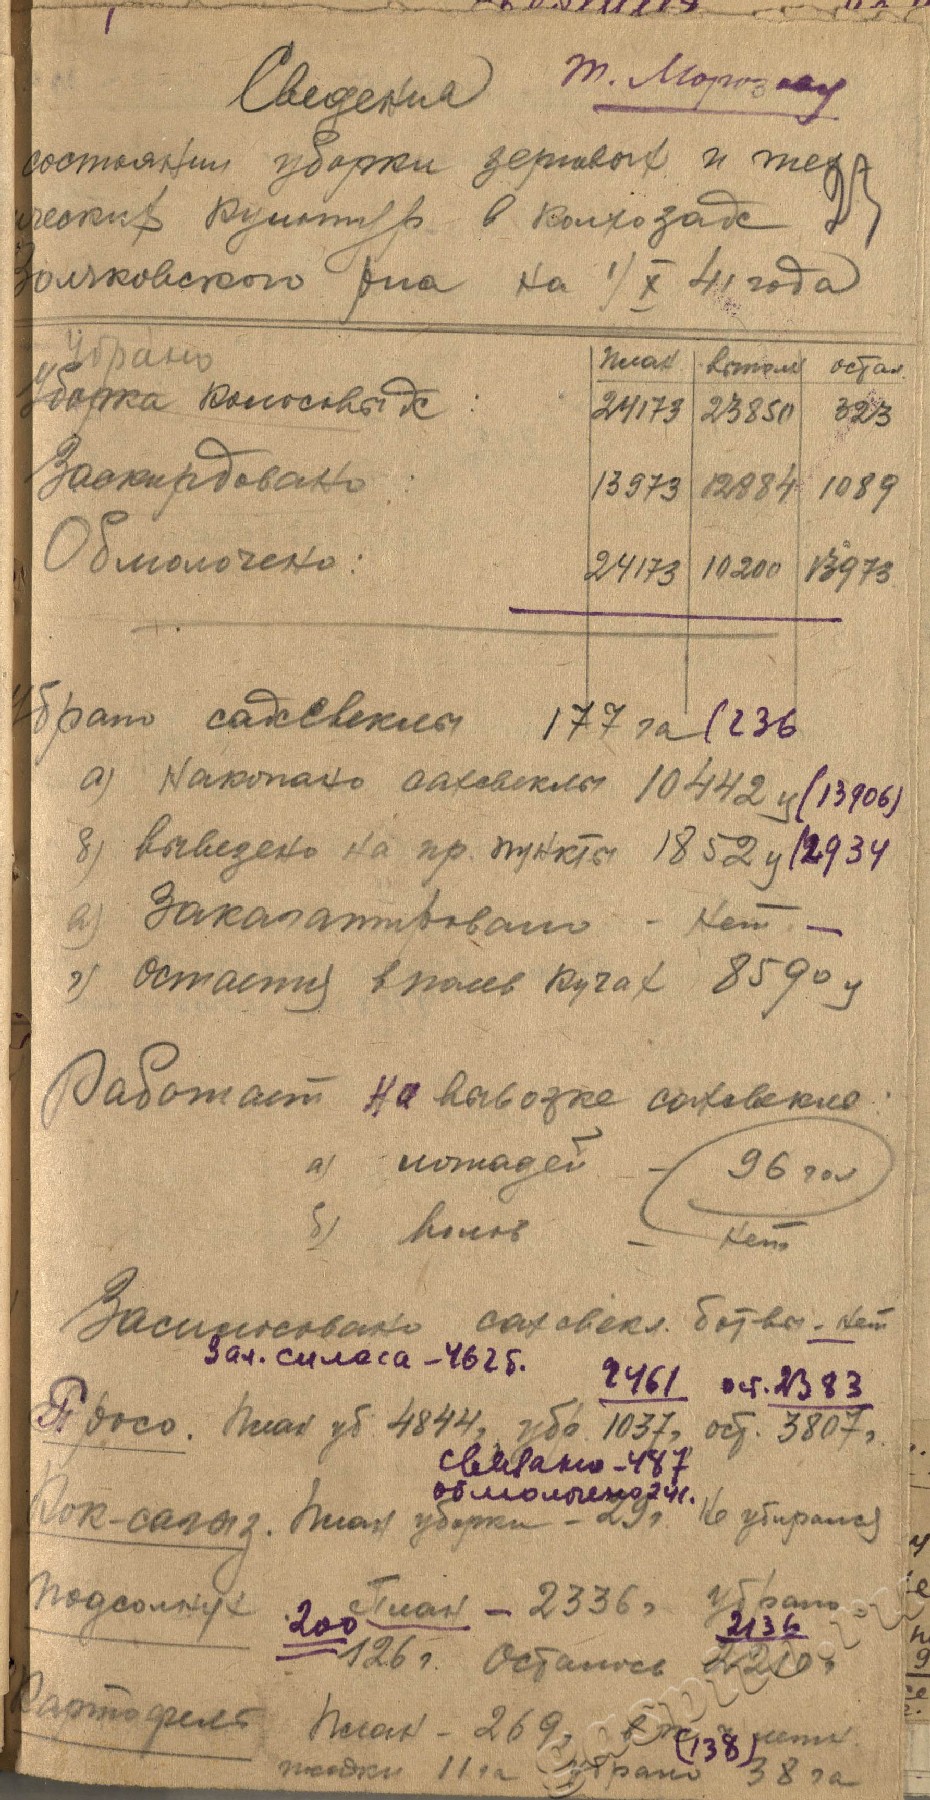 Сведения т. Морозову
состоянии уборки зерновых и тех
ических культур в колхозах 23
ского р-на на 1/X 41 года
Убрано
план выпол остал
Уборка колосовых : 24173 23850 323
Заскирдовано : 13973 12884 1089
Обмолочено : 24173 10200 13973
Убрано сахсвеклы 177 га (236
а) Накопано сахсвеклы 10442 ц (13906)
б) вывезено на пр. пункты 1852 ц (2934
в) Закагатировано - нет -
г) Остается в полев кучах 8590 ц
Работает на вывозке сахсвеклы :
а) лошадей - 96 гол
б) волов - нет
Засилосовано сахсвекл. ботвы - нет
Зал. силоса - 462 б.
2461 ост. 2383
Просо. План уб 4844, убр. 1037, ост. 3807,
связано - 487
обмолочено 241.
Кок-сагыз. План уборки - 29г. Не убирался
Подсолнух План - 2336, убрано -
200 2136
126 г. Осталось 2210,
Картофель План - 269,
(138)
11 га убрано 38 га